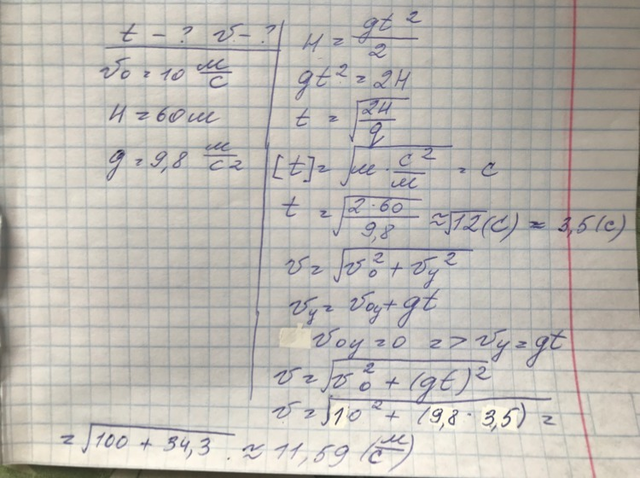 t - ? v - ?
v₀ = 10 м/с
H = 60 м
g = 9,8 м/с²
H = gt²/2
gt² = 2H
t = √(2H/g)
[t] = √(м · с²/м) = с
t = √(2·60/9,8) ≈ √12 (с) ≈ 3,5 (с)
v = √(v₀² + v_y²)
v_y = v₀y + gt
v₀y = 0 => v_y = gt
v = √(v₀² + (gt)²)
v = √(10² + (9,8 · 3,5)) =
= √(100 + 34,3) ≈ 11,59 (м/с)